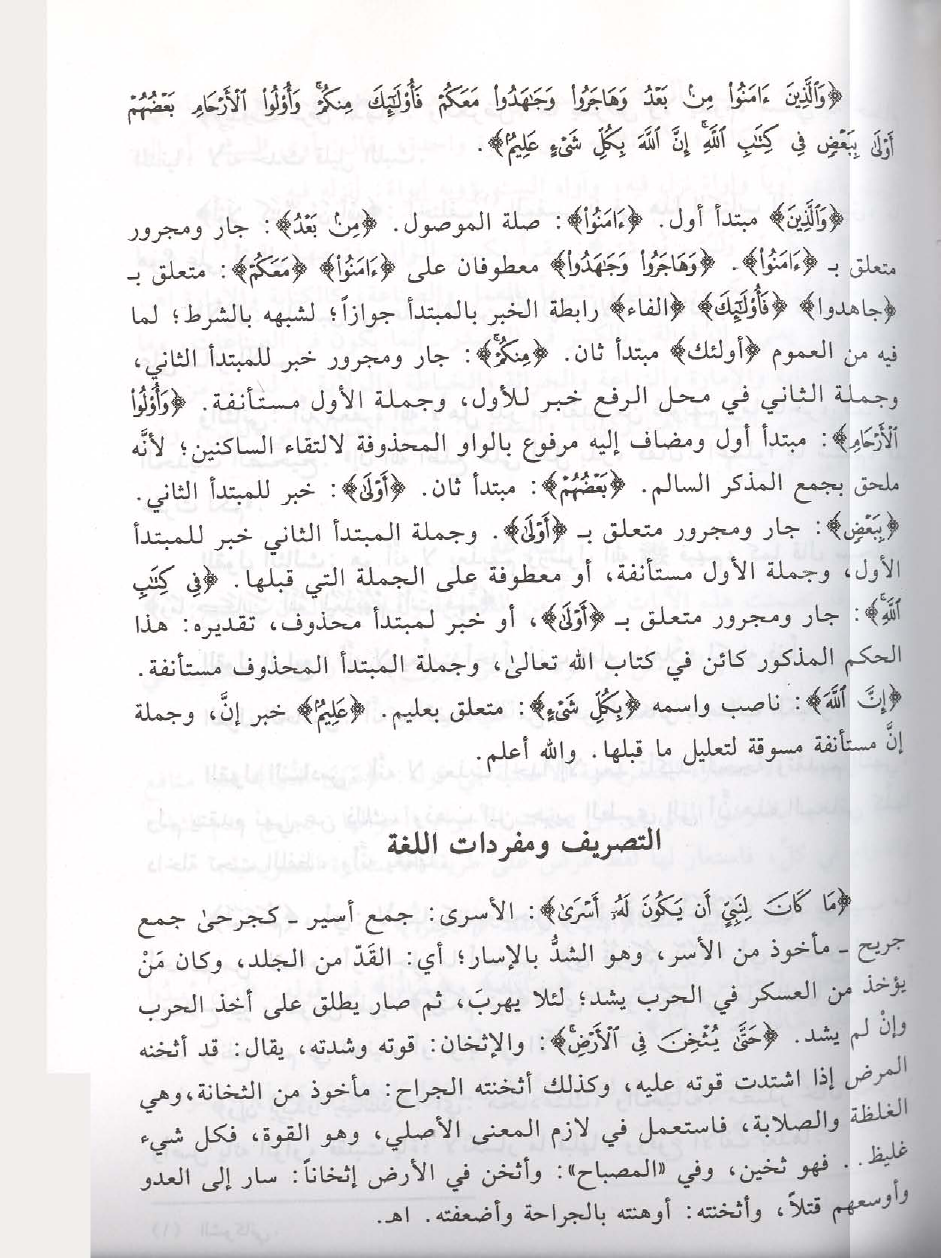 ﴿وَٱلَّذِينَ ءَامَنُوا۟ مِنۢ بَعْدُ وَهَاجَرُوا۟ وَجَٰهَدُوا۟ مَعَكُمْ فَأُو۟لَٰٓئِكَ مِنكُمْ ۚ وَأُو۟لُوا۟ ٱلْأَرْحَامِ بَعْضُهُمْ
أَوْلَىٰ بِبَعْضٍ فِى كِتَٰبِ ٱللَّهِ ۗ إِنَّ ٱللَّهَ بِكُلِّ شَىْءٍ عَلِيمٌۢ﴾.
﴿وَٱلَّذِينَ﴾ مبتدأ أول. ﴿ءَامَنُوا۟﴾: صلة الموصول. ﴿مِنۢ بَعْدُ﴾: جار ومجرور
متعلق بـ ﴿ءَامَنُوا۟﴾. ﴿وَهَاجَرُوا۟ وَجَٰهَدُوا۟﴾ معطوفان على ﴿ءَامَنُوا۟﴾ ﴿مَعَكُمْ﴾: متعلق بـ
﴿جاهدوا﴾ ﴿فَأُو۟لَٰٓئِكَ﴾ ﴿الفاء﴾ رابطة الخبر بالمبتدأ جوازاً؛ لشبهه بالشرط؛ لما
فيه من العموم ﴿أولئك﴾ مبتدأ ثان. ﴿مِنكُمْ ۚ﴾: جار ومجرور خبر للمبتدأ الثاني،
وجملة الثاني في محل الرفع خبر للأول، وجملة الأول مستأنفة. ﴿وَأُو۟لُوا۟
ٱلْأَرْحَامِ﴾: مبتدأ أول ومضاف إليه مرفوع بالواو المحذوفة لالتقاء الساكنين؛ لأنَّه
ملحق بجمع المذكر السالم. ﴿بَعْضُهُمْ﴾: مبتدأ ثان. ﴿أَوْلَىٰ﴾: خبر للمبتدأ الثاني.
﴿بِبَعْضٍ﴾: جار ومجرور متعلق بـ ﴿أَوْلَىٰ﴾. وجملة المبتدأ الثاني خبر للمبتدأ
الأول، وجملة الأول مستأنفة، أو معطوفة على الجملة التي قبلها. ﴿فِى كِتَٰبِ
ٱللَّهِ ۗ﴾: جار ومجرور متعلق بـ ﴿أَوْلَىٰ﴾، أو خبر لمبتدأ محذوف، تقديره: هذا
الحكم المذكور كائن في كتاب الله تعالىٰ، وجملة المبتدأ المحذوف مستأنفة.
﴿إِنَّ ٱللَّهَ﴾: ناصب واسمه ﴿بِكُلِّ شَىْءٍ﴾: متعلق بعليم. ﴿عَلِيمٌۢ﴾ خبر إنَّ، وجملة
إنَّ مستأنفة مسوقة لتعليل ما قبلها. والله أعلم.
التصريف ومفردات اللغة
﴿مَا كَانَ لِنَبِىٍّ أَن يَكُونَ لَهُۥٓ أَسْرَىٰ﴾: الأسرى: جمع أسير ـ كجرحىٰ جمع
جريح ـ مأخوذ من الأسر، وهو الشدُّ بالإسار؛ أي: القَدّ من الجلد، وكان مَنْ
يؤخذ من العسكر في الحرب يشد؛ لئلا يهربَ، ثم صار يطلق على أخذ الحرب
وإنْ لم يشد. ﴿حَتَّىٰ يُثْخِنَ فِى ٱلْأَرْضِ ۚ﴾: والإثخان: قوته وشدته، يقال: قد أثخنه
المرض إذا اشتدت قوته عليه، وكذلك أثخنته الجراح: مأخوذ من الثخانة، وهي
الغلظة والصلابة، فاستعمل في لازم المعنى الأصلي، وهو القوة، فكل شيء
غليظ.. فهو ثخين، وفي «المصباح»: وأثخن في الأرض إثخاناً: سار إلى العدو
وأوسعهم قتلاً، وأثخنته: أوهنته بالجراحة وأضعفته. اهـ.